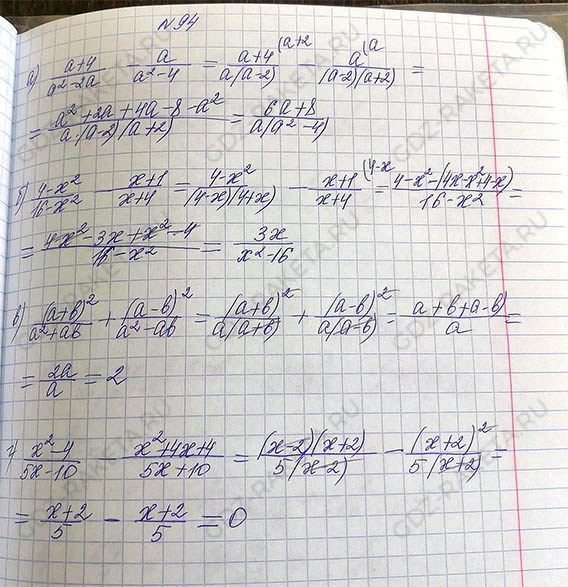 №94
а) (a+4)/(a²-2a) - a/(a²-4) = (a+4 (a+2)/(a(a-2)) - a (a/((a-2)(a+2)) =
= (a²+2a+4a-8-a²)/(a·(a-2)(a+2)) = (6a+8)/(a(a²-4))
б) (4-x²)/(16-x²) - (x+1)/(x+4) = (4-x²)/((4-x)(4+x)) - (x+1 (4-x)/(x+4) = (4-x²-(4x-x²+4-x))/(16-x²) =
= (4-x²-3x+x²-4)/(16-x²) = 3x/(x²-16)
в) (a+b)²/(a²+ab) + (a-b)²/(a²-ab) = (a+b)²/(a(a+b)) + (a-b)²/(a(a-b)) = (a+b+a-b)/a =
= 2a/a = 2
г) (x²-4)/(5x-10) - (x²+4x+4)/(5x+10) = (x-2)(x+2)/(5(x-2)) - (x+2)²/(5(x+2)) =
= (x+2)/5 - (x+2)/5 = 0
GDZ-RAKETA.RU